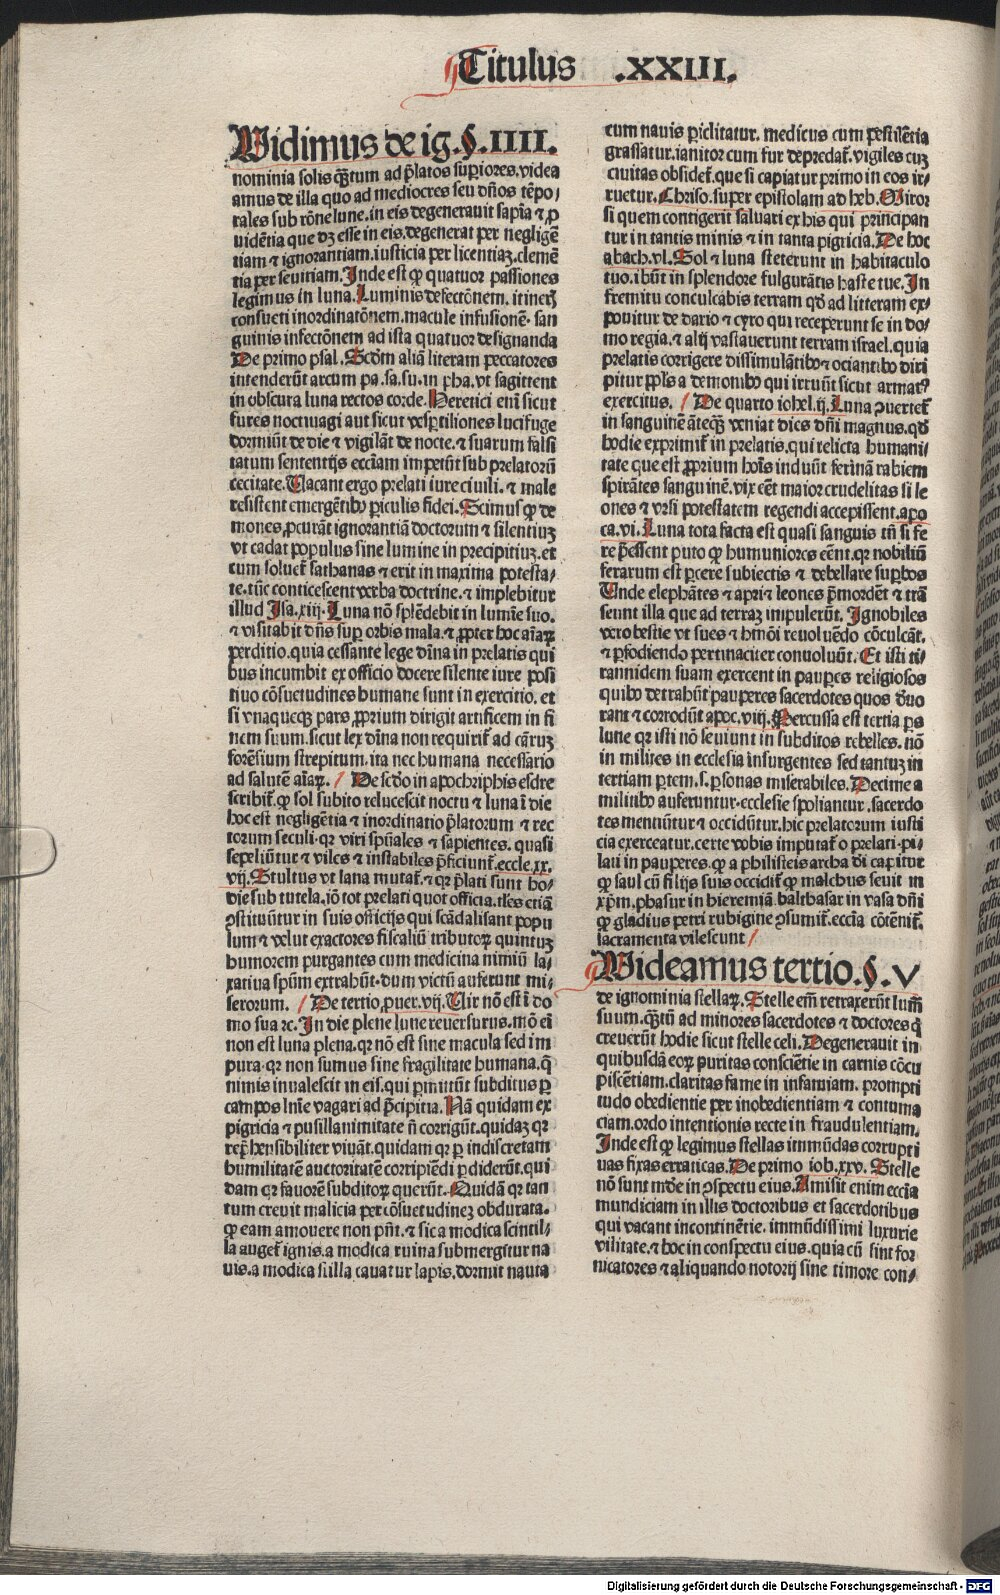 Titulus .XXIII.
Vidimus de ig.§.IIII.
nominia solis qȝtum ad p̄latos supiores.videa
amus de illa quo ad mediocres seu dños tēpo/
rales sub rōne lune.in eis degenerauit sapīa ⁊ ꝓ
uidētia que dȝ esse in eis.degenerat per negligē
tiam ⁊ ignorantiam.iusticia per licentiaȝ.clemē
tia per seuitiam.Inde est ꝙ quatuor passiones
legimus in luna.Luminis defectōnem.itineꝝ
consueti inordinatōnem.macule infusionē.san
guinis infectōnem ad ista quatuor designanda
De primo psal.Scdm aliā literam peccatores
intenderūt arcum pa.sa.su.in pha.vt sagittent
in obscura luna rectos corde.Heretici eni sicut
fures noctiuagi aut sicut vesptiliones lucifuge
dormiūt de die ⁊ vigilāt de nocte.⁊ suarum falsi
tatum sententijs eccīam impetūt sub prelatorū
cecitate.Uacant ergo prelati iure ciuili.⁊ male
resistent emergētibꝰ ꝑiculis fidei.Scimus ꝙ de
mones ꝓcurāt ignorantiā doctorum ⁊ silentiuȝ
vt cadat populus sine lumine in precipitiuȝ.et
cum soluet̄ sathanas ⁊ erit in maxima potesta/
te.tūc conticescent verba doctrine.⁊ implebitur
illud Isa.xiij.Luna nō splēdebit in lumīe suo.
⁊ visitabit dñs sup orbis mala.⁊ ꝓpter hoc aīaꝝ
perditio.quia cessante lege dīna in prelatis qui
bus incumbit ex officio docere silente iure posi
tiuo cōsuetudines humane sunt in exercitio.et
si vnaqueqȝ pars ꝓprium dirigit artificem in fi
nem suum.sicut lex dīna non requirit̄ ad cāruȝ
forēsium strepitum.ita nec humana necessario
ad salutē aīaꝝ. De scdo in apochriphis esdre
scribit̄.ꝙ sol subito relucescit noctu ⁊ luna ī die
hoc est negligētia ⁊ inordinatio p̄latorum ⁊ rec
torum seculi.qꝛ viri spūales ⁊ sapientes.quasi
sepeliūtur ⁊ viles ⁊ instabiles p̄ficiunt̄.eccle.xx.
vij.Stultus vt luna mutat̄.⁊ qꝛ p̄lati sunt ho/
die sub tutela.iō tot prelati quot officia.tles etiā
ꝯstituūtur in suis officijs qui scādalisant popu
lum ⁊ velut exactores fiscaliū tributoꝝ quintuȝ
humorem purgantes cum medicina nimiū la/
xatiua spūm extrahūt.dum victū auferunt mi/
serorum. De tertio ꝓuer.vij.Uir nō est ī do
mo sua ⁊c.In die plene lune reuersurus.mō eī
non est luna plena.qꝛ nō est sine macula sed im
pura.qꝛ non sumus sine fragilitate humana.q̄
nimis inualescit in eis.qui ꝑmittūt subditus ꝑ
campos lnīe vagari ad p̄cipitia.Nā quidam ex
pigricia ⁊ pusillanimitate ñ corrigūt.quidaȝ qꝛ
rep̄hensibiliter viuāt.quidam qꝛ ꝑ indiscretam
humilitatē auctoritatē corripiēdi ꝑdiderūt.qui
dam qꝛ fauorē subditoꝝ querūt.Quidā qꝛ tan
tum creuit malicia per cōsuetudineȝ obdurata.
ꝙ eam amouere non pñt.⁊ sic a modica scintil/
la auget̄ ignis.a modica ruina submergitur na
uis.a modica stilla cauatur lapis.dormit nauta
cum nauis ꝑiclitatur.medicus cum pestilētia
grassatur.ianitor cum fur depredat̄.vigiles cuȝ
ciuitas obsidet̄.que si capiatur primo in eos ir/
ruetur.Chriso.super epistolam ad heb.Miror
si quem contigerit saluari ex his qui principan
tur in tantis minis ⁊ in tanta pigricia.De hoc
abach.vl.Sol ⁊ luna steterunt in habitaculo
tuo.ibūt in splendore fulgurātis haste tue.In
fremitu conculcabis terram qď ad litteram ex/
ponitur de dario ⁊ cyro qui receperunt se in do/
mo regia.⁊ alij vastauerunt terram israel.quia
prelatis corrigere dissimulātibꝰ ⁊ ociantibꝰ diri
pitur ppls a demonibꝰ qui irruūt sicut armatꝰ
exercitus. De quarto iohel.ij.Luna ꝯuertet̄
in sanguinē āteqȝ veniat dies dñi magnus.qď
hodie exprimit̄ in prelatis.qui relicta humani/
tate que est ꝓprium hoīs induūt ferinā rabiem
spirātes sanguinē.vix cēt maior crudelitas si le
ones ⁊ vrsi potestatem regendi accepissent.apo
ca.vi.Luna tota facta est quasi sanguis tñ si fe
re p̄essent puto ꝙ humuniores eēnt.qꝛ nobiliū
ferarum est ꝑcere subiectis ⁊ debellare supbos
Unde elephātes ⁊ apri ⁊ leones p̄mordēt ⁊ trā
seunt illa que ad terraȝ impulerūt.Ignobiles
vero bestie vt sues ⁊ hmōi reuoluēdo cōculcāt.
⁊ ꝑfodiendo pertinaciter conuoluūt.Et isti ti/
rannidem suam exercent in pauꝑes religiosos
quibꝰ detrahūt pauperes sacerdotes quos ďuo
rant ⁊ corrodūt apoc.viij.Percussa est tertia ps
lune qꝛ isti nō seuiunt in subditos rebelles.nō
in milites in ecclesia insurgentes sed tantuȝ in
tertiam ꝑtem.s.ꝑsonas miserabiles.Decime a
militibꝰ auferuntur.ecclesie spoliantur.sacerdo
tes mentiūtur ⁊ occidūtur.hic prelatorum iusti
cia exerceatur.certe vobis imputat̄ o prelati.pi/
lati in pauperes.ꝙ a philisteis archa di capitur
ꝙ saul cū filijs suis occidit̄ ꝙ malchus seuit in
xp̄m.phasur in hieremiā balthasar in vasa dñi
ꝙ gladius petri rubigine ꝯsumit̄.eccīa cōtēnit̄.
sacramenta vilescunt
Videamus tertio.§.V
de ignominia stellaꝝ.Stelle em̄ retraxerūt lum̄
suum.qȝtū ad minores sacerdotes ⁊ doctores q̄
creuerūt hodie sicut stelle celi.Degenerauit in
quibusdā eoꝝ puritas consciētie in carnis cōcu
piscētiam.claritas fame in infamiam.prompti
tudo obedientie per inobedientiam ⁊ contuma
ciam.ordo intentionis recte in fraudulentiam.
Inde est ꝙ legimus stellas immūdas corrupti
uas fixas erraticas.De primo iob.xxv.Stelle
nō sunt mūde in ꝯspectu eius.Amisit enim eccīa
mundiciam in illis doctoribus et sacerdotibus
qui vacant incontinētie.immūdissimi luxurie
vilitate.⁊ hoc in conspectu eius.quia cū sint for
nicatores ⁊ aliquando notorij sine timore con/
Digitalisierung gefördert durch die Deutsche Forschungsgemeinschaft - DFG